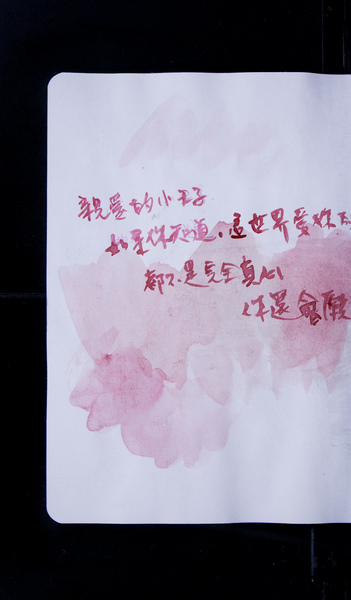 親愛的小王子
如果你知道，這世界愛你
都不是完全真心
你還會願